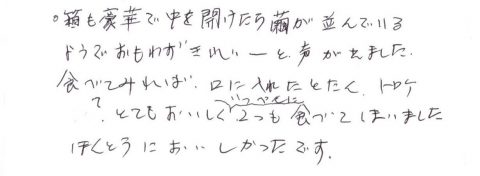 。箱も豪華で中を開けたら繭が並んでいる
ようでおもわずきれいーと、声がでました.
食べてみれば、口に入れたとたん、トロケ
? とてもおいしくいっぺんに2つも食べてしまいました
ほんとうにおいしかったです.